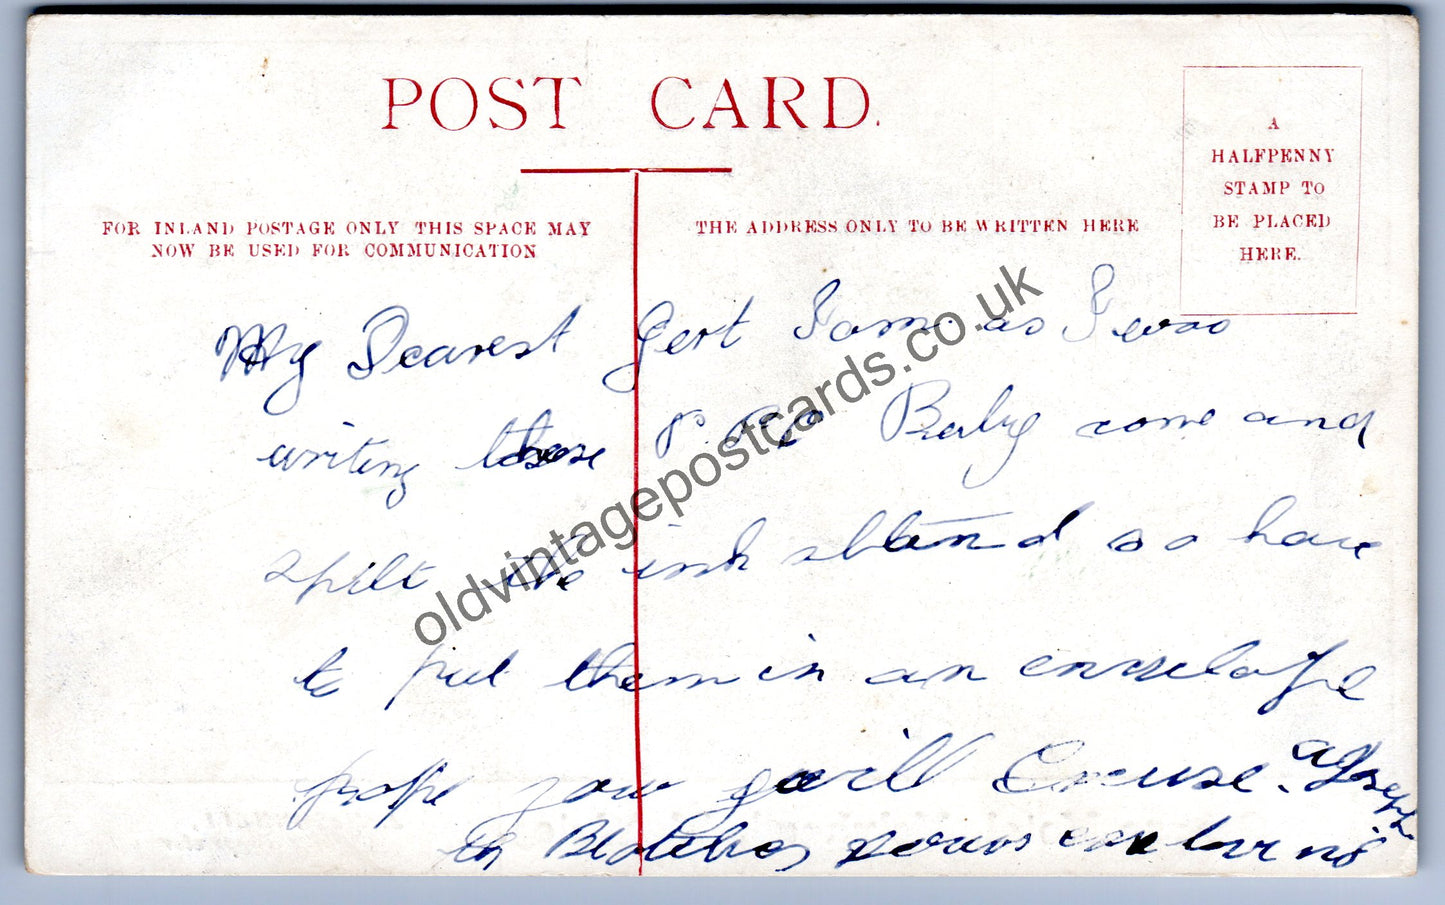 POST CARD.
A
HALFPENNY
STAMP TO
BE PLACED
HERE.
FOR INLAND POSTAGE ONLY THIS SPACE MAY
NOW BE USED FOR COMMUNICATION
THE ADDRESS ONLY TO BE WRITTEN HERE
My Dearest Gert I am as I was
writing these Baby come and
spilt the ink stand so have
to put them in an envelope
hope you will Excuse.
Blotches yours ever
oldvintagepostcards.co.uk